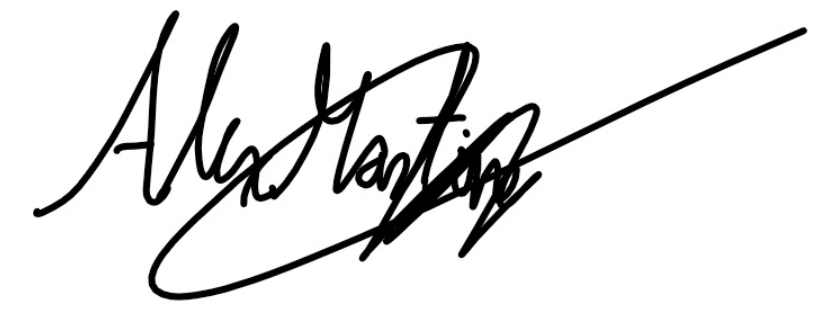 Alex Martino